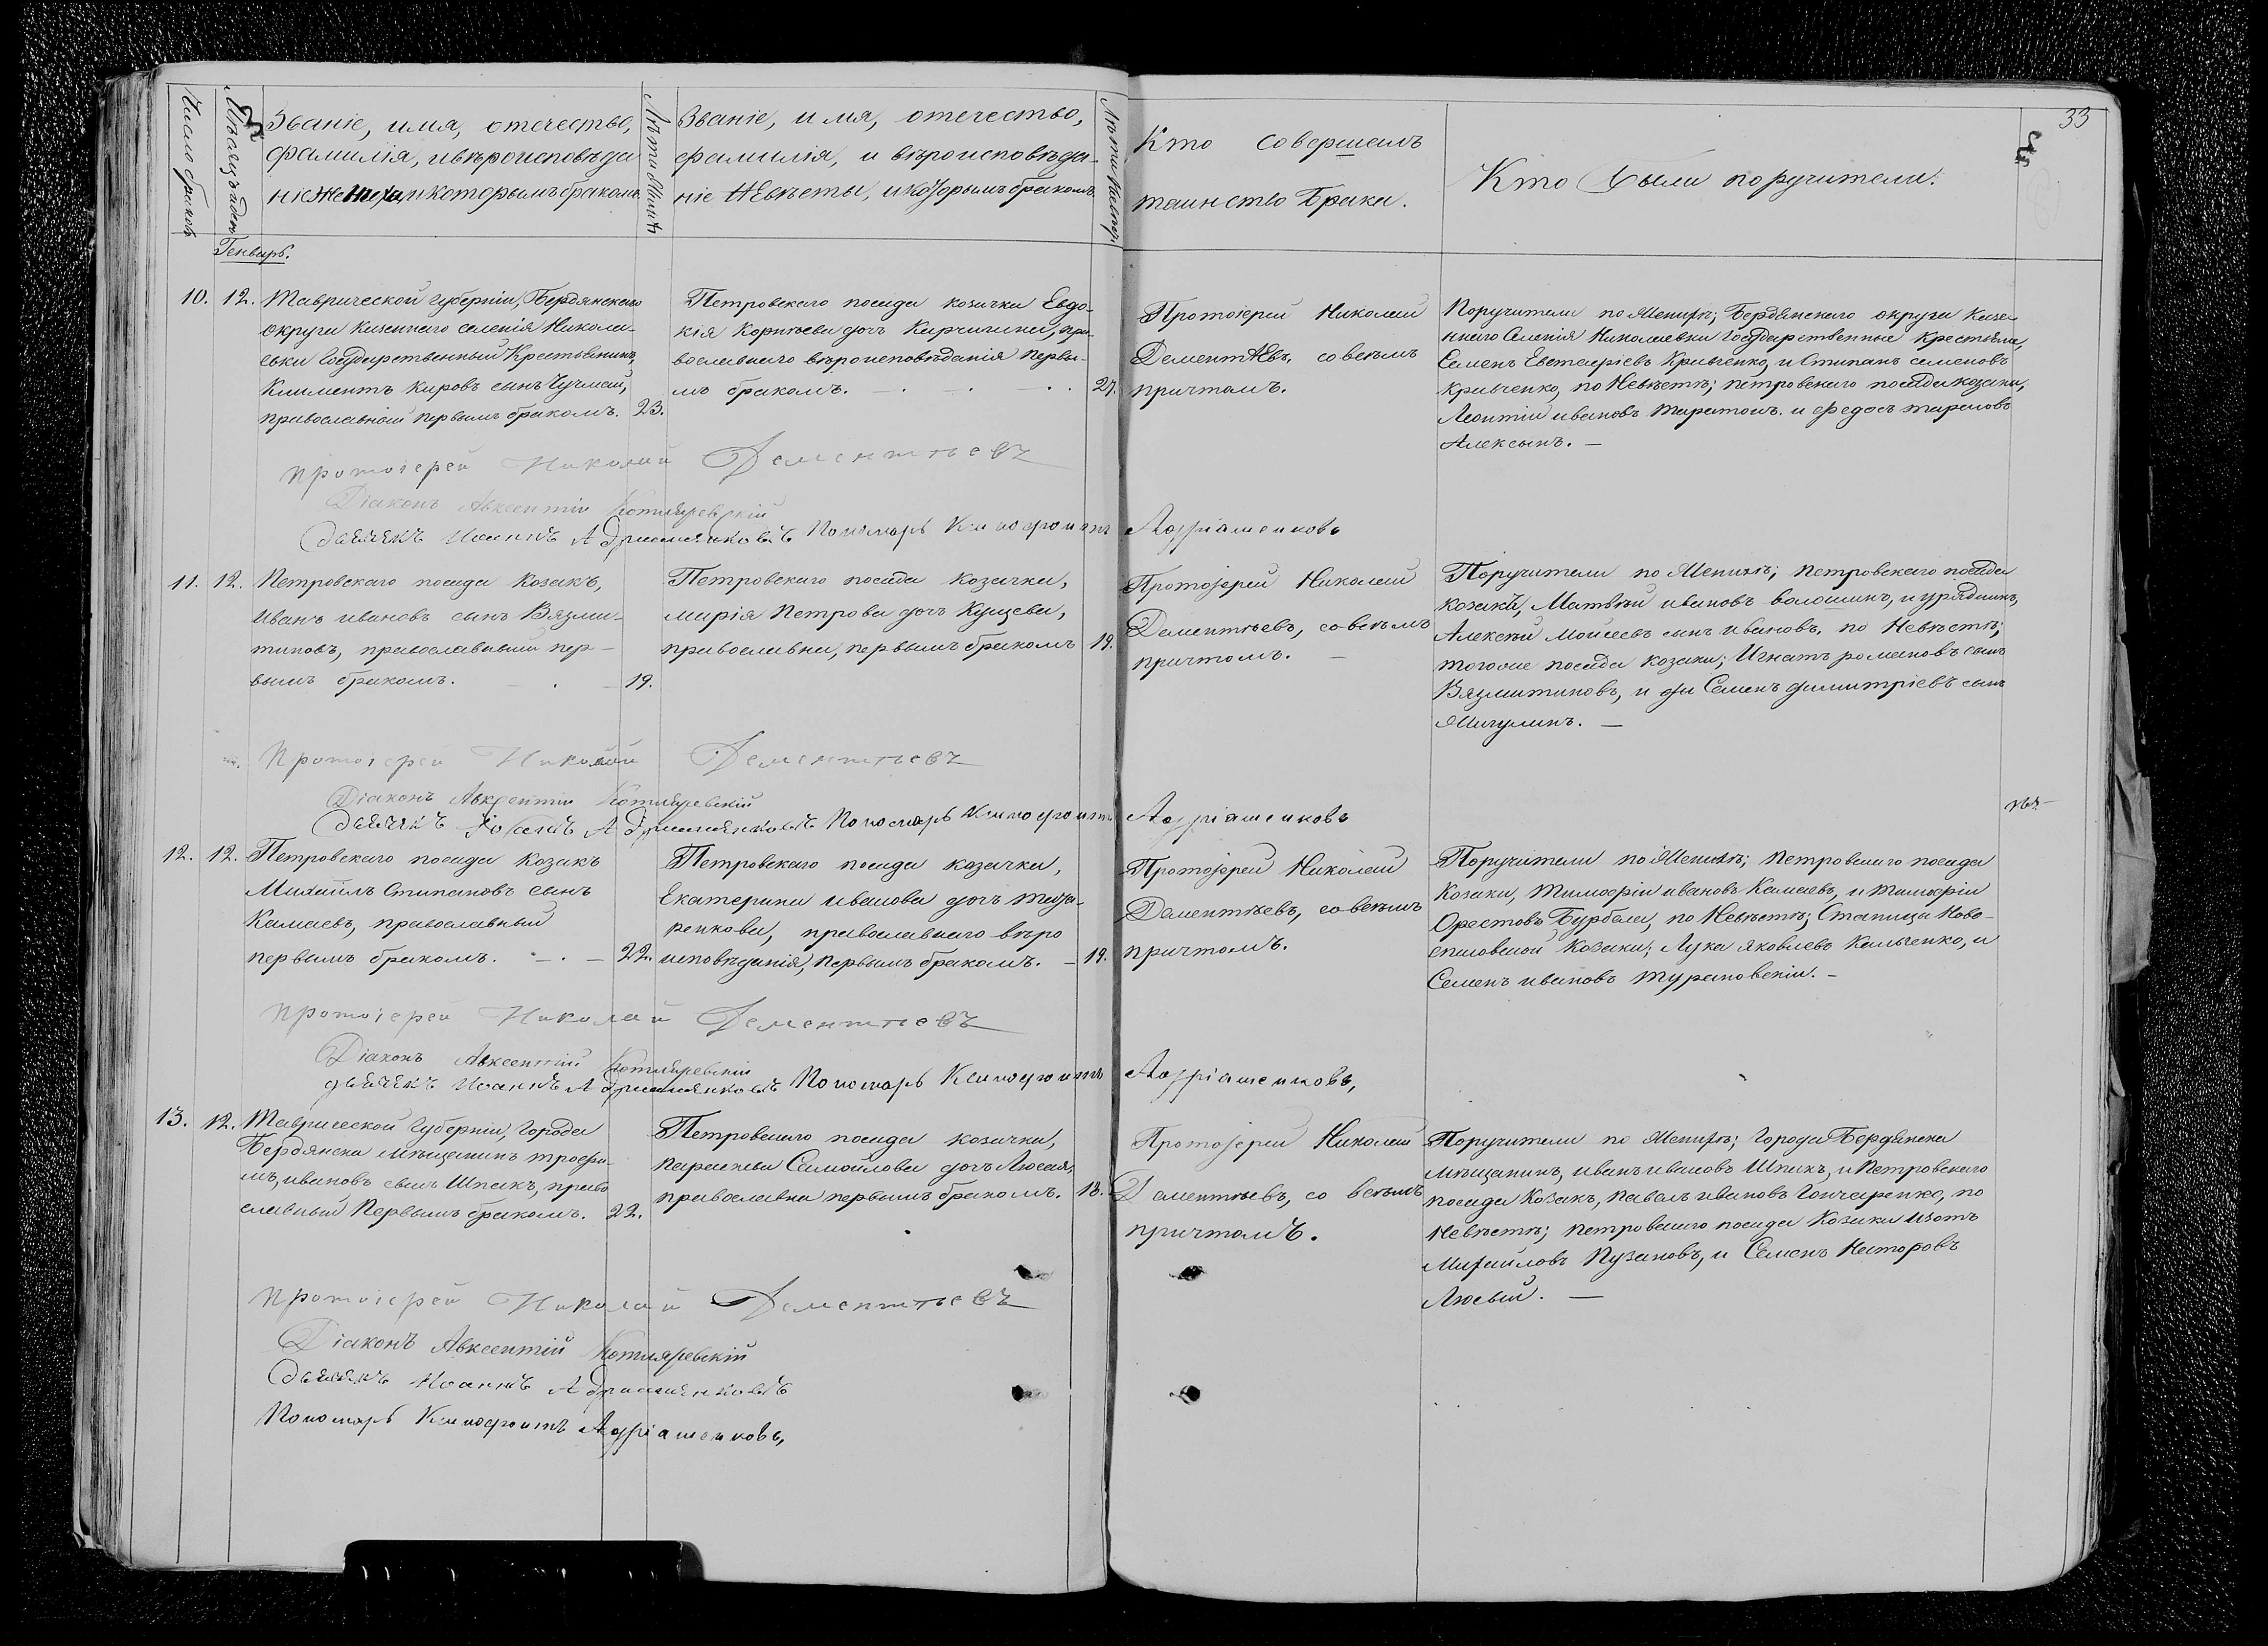 33
Число браковъ
Мѣсяцъ и день
Званіе, имя, отечество,
фамилія, и вѣроисповѣда
ніе жениха, и которымъ бракомъ.
Лѣта
Званіе, имя, отечество,
фамилія, и вѣроисповѣда-
ніе Невѣсты, и которымъ бракомъ.
Лѣта Невѣсты
Кто совершалъ
таинство Брака.
Кто были поручители.
Генварь.
10. 12.
Таврической губерніи, Бердянскаго
округа казеннаго селенія Никола-
евки Государственный Крестьянинъ,
Климентъ Кировъ сынъ Чучмай,
православный первымъ бракомъ. 23.
Петровскаго посада козачка Евдо-
кія Корнѣева дочь Кирчишка, пра-
вославнаго вѣроисповѣданія первы-
мъ бракомъ. 27.
Протоіерей Николай
Дементѣвъ, со всѣмъ
причтомъ.
Поручители по Женихѣ; Бердянскаго округа Казе-
ннаго Селенія Николаевки Государственные Крестьяне,
Семенъ Евстафіевъ Кривченко, и Стипанъ семеновъ
Кривченко, по Невѣстѣ; петровскаго посада козаки,
Леонтій ивановъ и федосъ
Алексынъ. —
протоіерей Николай Дементьевъ
Діаконъ Авксентій Котляревскій
дьячекъ Иоаннъ Адріяшенковъ Пономарь Ксенофонтъ Андріяшенковъ
11. 12.
Петровскаго посада Козакъ,
Иванъ ивановъ сынъ Вязми-
тиновъ, православный пер-
вымъ бракомъ. 19.
Петровскаго посада козачка,
марія Петрова дочь Куцева,
православна, первымъ бракомъ 19.
Протоіерей Николай
Дементѣевъ, со всѣмъ
причтомъ. —
Поручители по Женихѣ; петровскаго посада
козакъ, Матвѣй ивановъ волошинъ, и урядникъ,
Алексѣй Моисеевъ сынъ ивановъ, по Невѣстѣ;
тогоже посада козаки; Игнатъ романовъ сынъ
Вязмитиновъ, и Семенъ димитріевъ сынъ
Мигулинъ. —
Протоіерей Николай Дементьевъ
Діаконъ Авксентій Котляревскій
дьячекъ Иоаннъ Адріяшенковъ Пономарь Ксенофонтъ Андріяшенковъ
12. 12.
Петровскаго посада Козакъ
Михаилъ Стипановъ сынъ
Камаевъ, православный
первымъ бракомъ. 22.
Петровскаго посада козачка,
Екатерина иванова дочь
ренкова, православнаго вѣро
исповѣданія, первымъ бракомъ. — 19.
Протоіерей Николай
Дементѣевъ, со всѣмъ
причтомъ.
Поручители по Женихѣ; петровскаго посада
Козаки, Тимофій ивановъ Камаевъ, и Тимофій
Орестовъ Бурбела, по Невѣстѣ; Станицы Ново-
спасовской Козаки; Лука яковлевъ Кальченко, и
Семенъ ивановъ Турановскій. —
протоіерей Николай Дементьевъ
Діаконъ Авксентій Котляревскій
дьячекъ Иоаннъ Адріяшенковъ Пономарь Ксенофонтъ Андріяшенковъ,
13. 12.
Таврической Губерніи, Города
Бердянска мѣщанинъ трофи-
мъ, ивановъ сынъ Шпакъ, право
славный Первымъ бракомъ. 22.
Петровскаго посада козачка,
параскева Самойлова дочь Люсая,
православна первымъ бракомъ. 18.
Протоіерей Николай
Дементѣевъ, со всѣмъ
причтомъ.
Поручители по Женихѣ; Города Бердянска
мѣщанинъ, иванъ ивановъ Шпакъ, и Петровскаго
посада Козакъ, Павелъ ивановъ Гончаренко, по
Невѣстѣ; петровскаго посада Козаки Изотъ
Михайловъ Пузановъ, и Семенъ Несторовъ
Люсый. —
протоіерей Николай Дементьевъ
Діаконъ Авксентій Котляревскій
дьячекъ Иоаннъ Адріяшенковъ
Пономарь Ксенофонтъ Андріяшенковъ,